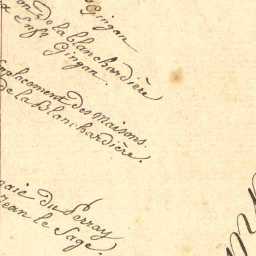 Gingan
on de la blanchardière
x Enfs Gingan.
eplacement des Maisons.
de la Blanchardière.
aie du Perray
Jean le Sage.